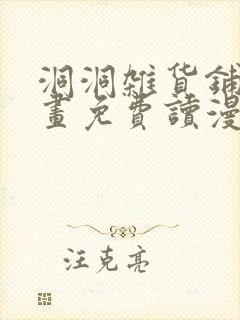 洞洞雜貨鋪
畫免費讀漫
汪克亮